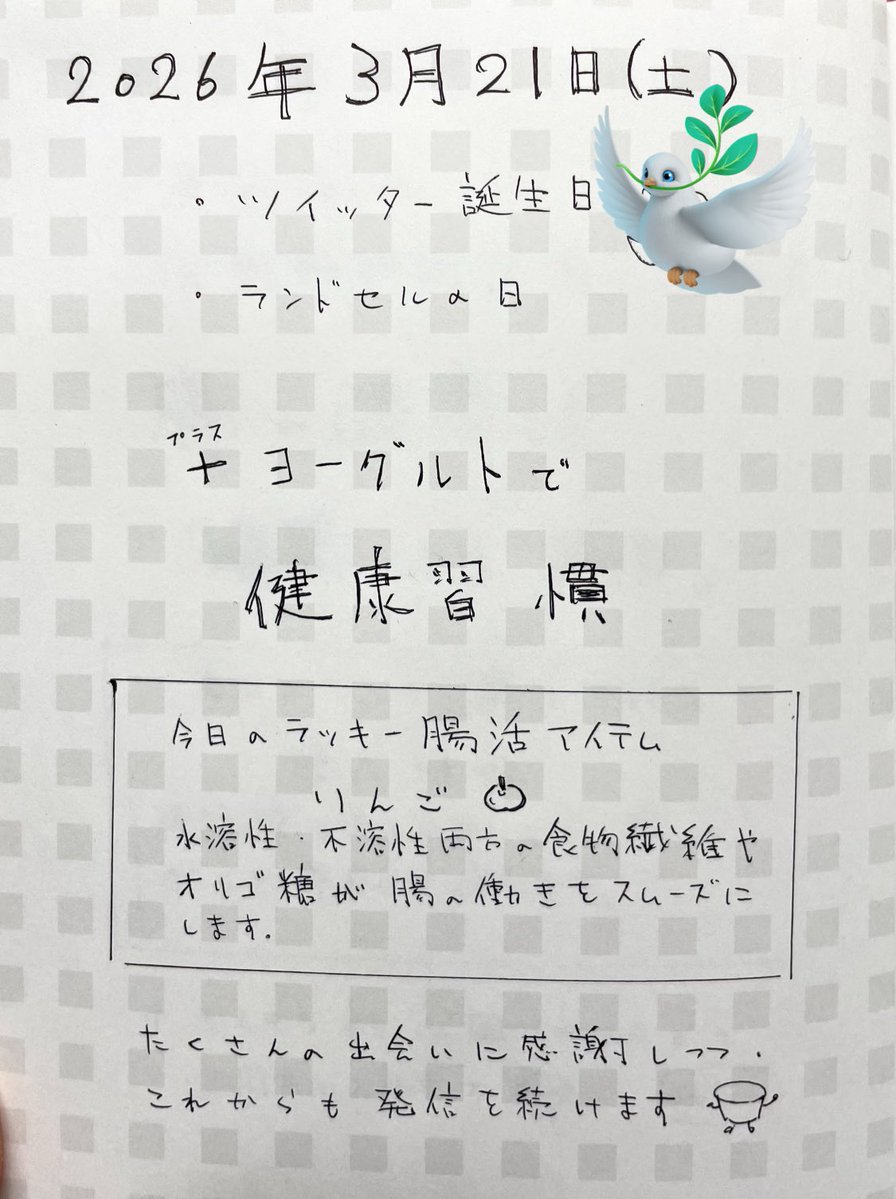 2026年3月21日(土)
・ツイッター誕生日
・ランドセルの日
プラス
+ヨーグルトで
健康習慣
今日のラッキー腸活アイテム
りんご
水溶性・不溶性両方の食物繊維や
オリゴ糖が腸の働きをスムーズに
します.
たくさんの出会いに感謝しつつ.
これからも発信を続けます